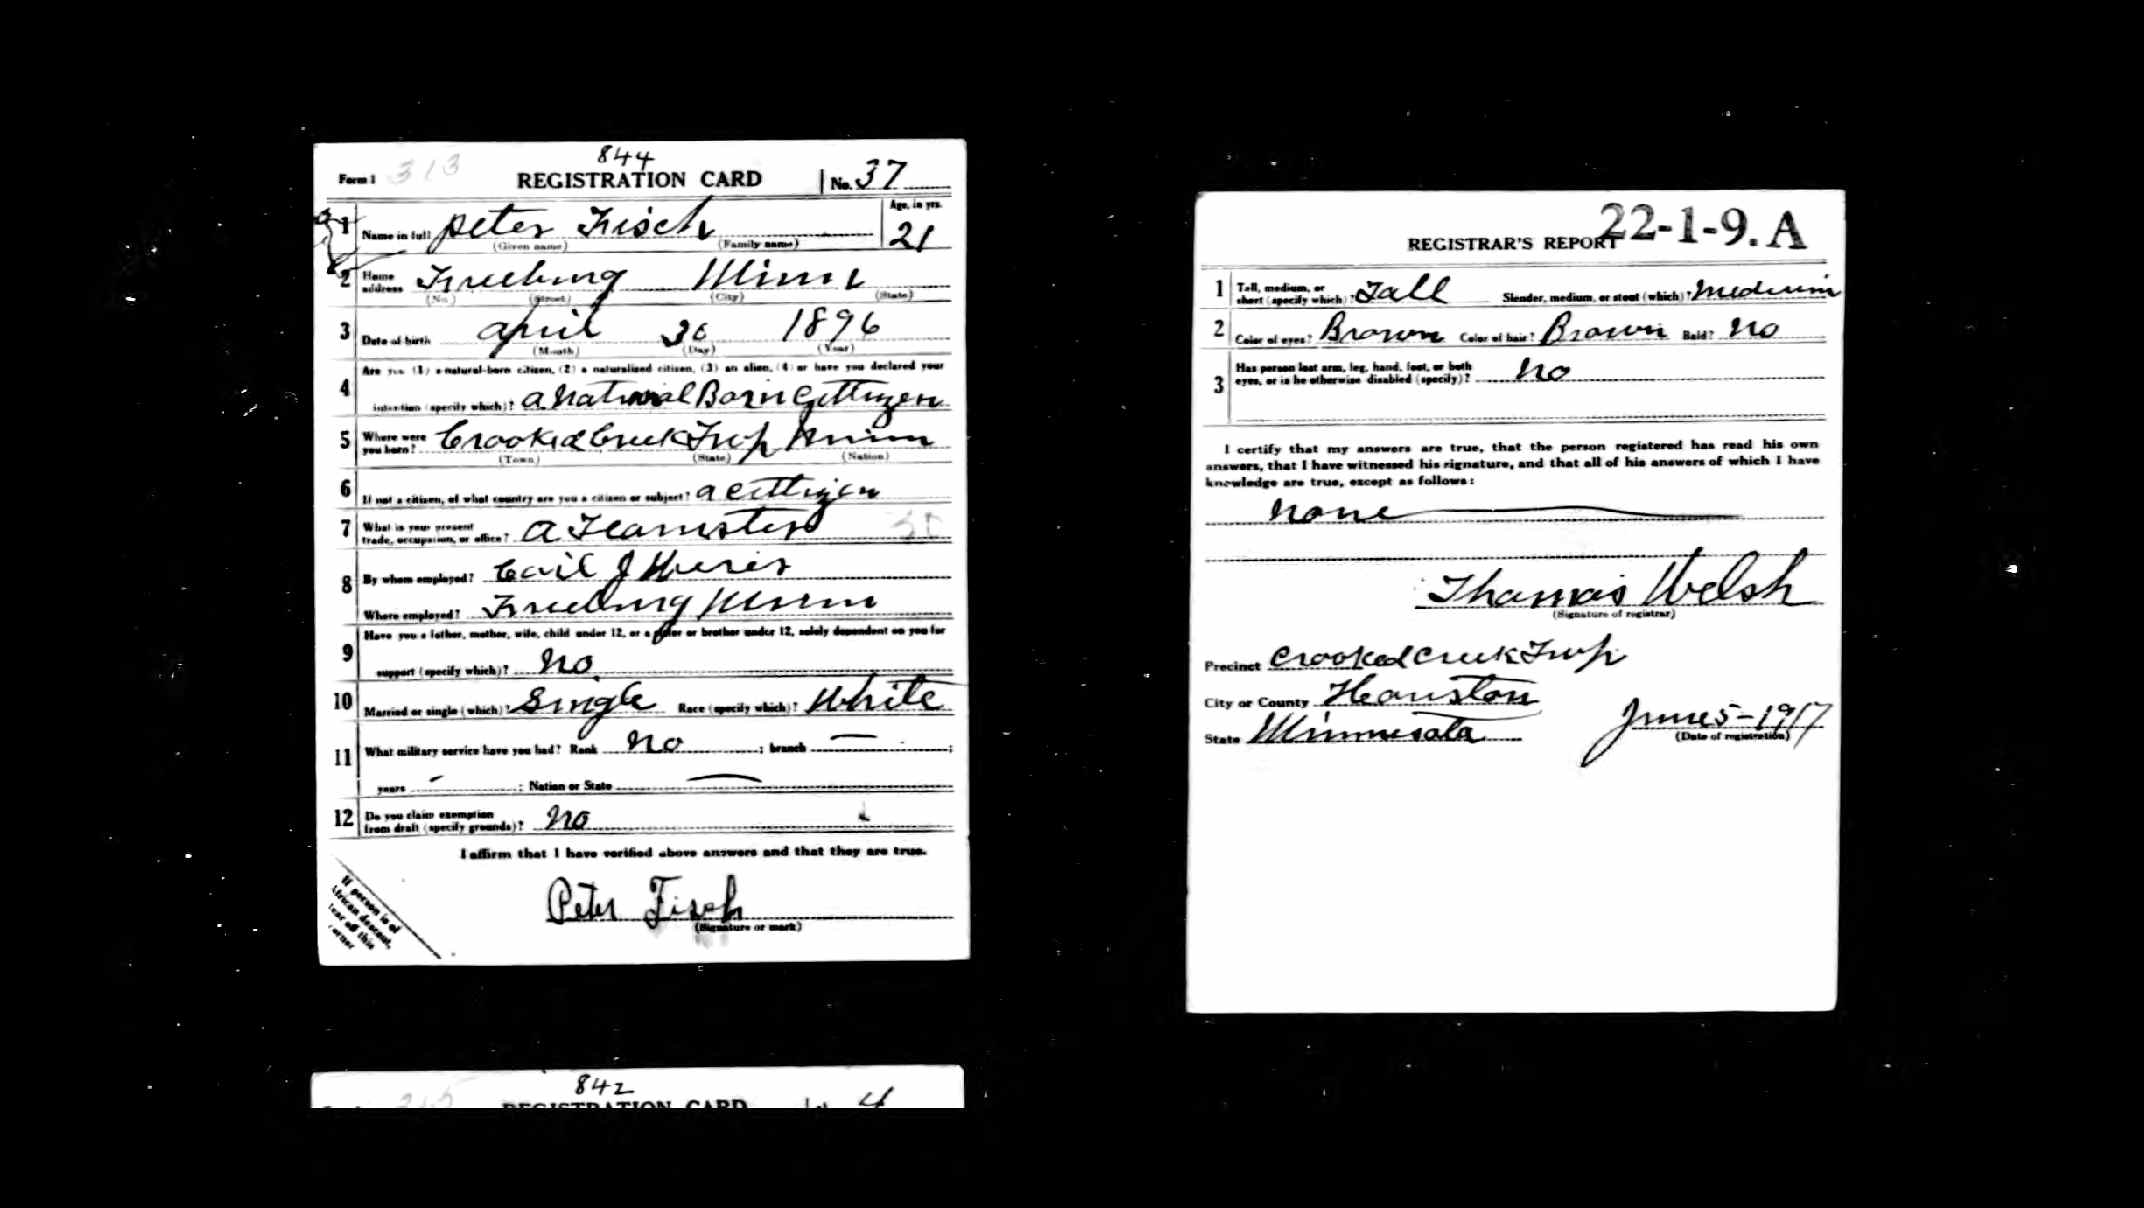 844
Form 1 313 REGISTRATION CARD No. 37
1 Name in full Peter Fisch Age, in yrs. 21
(Given name) (Family name)
2 Home address Freeburg Minn
(No.) (Street) (City) (State)
3 Date of birth April 30 1896
(Month) (Day) (Year)
4 Are you (1) a natural-born citizen, (2) a naturalized citizen, (3) an alien, (4) or have you declared your
intention (specify which)? a Natural Born Cittizen
5 Where were you born? Crooked Creek Twp Minn
(Town) (State) (Nation)
6 If not a citizen, of what country are you a citizen or subject? a cittizen
7 What is your present trade, occupation, or office? A Teamster
8 By whom employed? J
Where employed? Freeburg Minn
9 Have you a father, mother, wife, child under 12, or a sister or brother under 12, solely dependent on you for
support (specify which)? No
10 Married or single (which)? Single Race (specify which)? White
11 What military service have you had? Rank No ; branch — ;
years - ; Nation or State —
12 Do you claim exemption from draft (specify grounds)? No
I affirm that I have verified above answers and that they are true.
Peter Fisch
(Signature or mark)
If person is of
African descent,
tear off this
corner
842
REGISTRATION CARD
22-1-9. A
REGISTRAR'S REPORT
1 Tall, medium, or short (specify which)? Tall Slender, medium, or stout (which)? Medium
2 Color of eyes? Brown Color of hair? Brown Bald? No
3 Has person lost arm, leg, hand, foot, or both
eyes, or is he otherwise disabled (specify)? No
I certify that my answers are true, that the person registered has read his own
answers, that I have witnessed his signature, and that all of his answers of which I have
knowledge are true, except as follows:
None
Thomas Welsh
(Signature of registrar)
Precinct Crooked Creek Twp
City or County Houston
State Minnesota June 5-1917
(Date of registration)